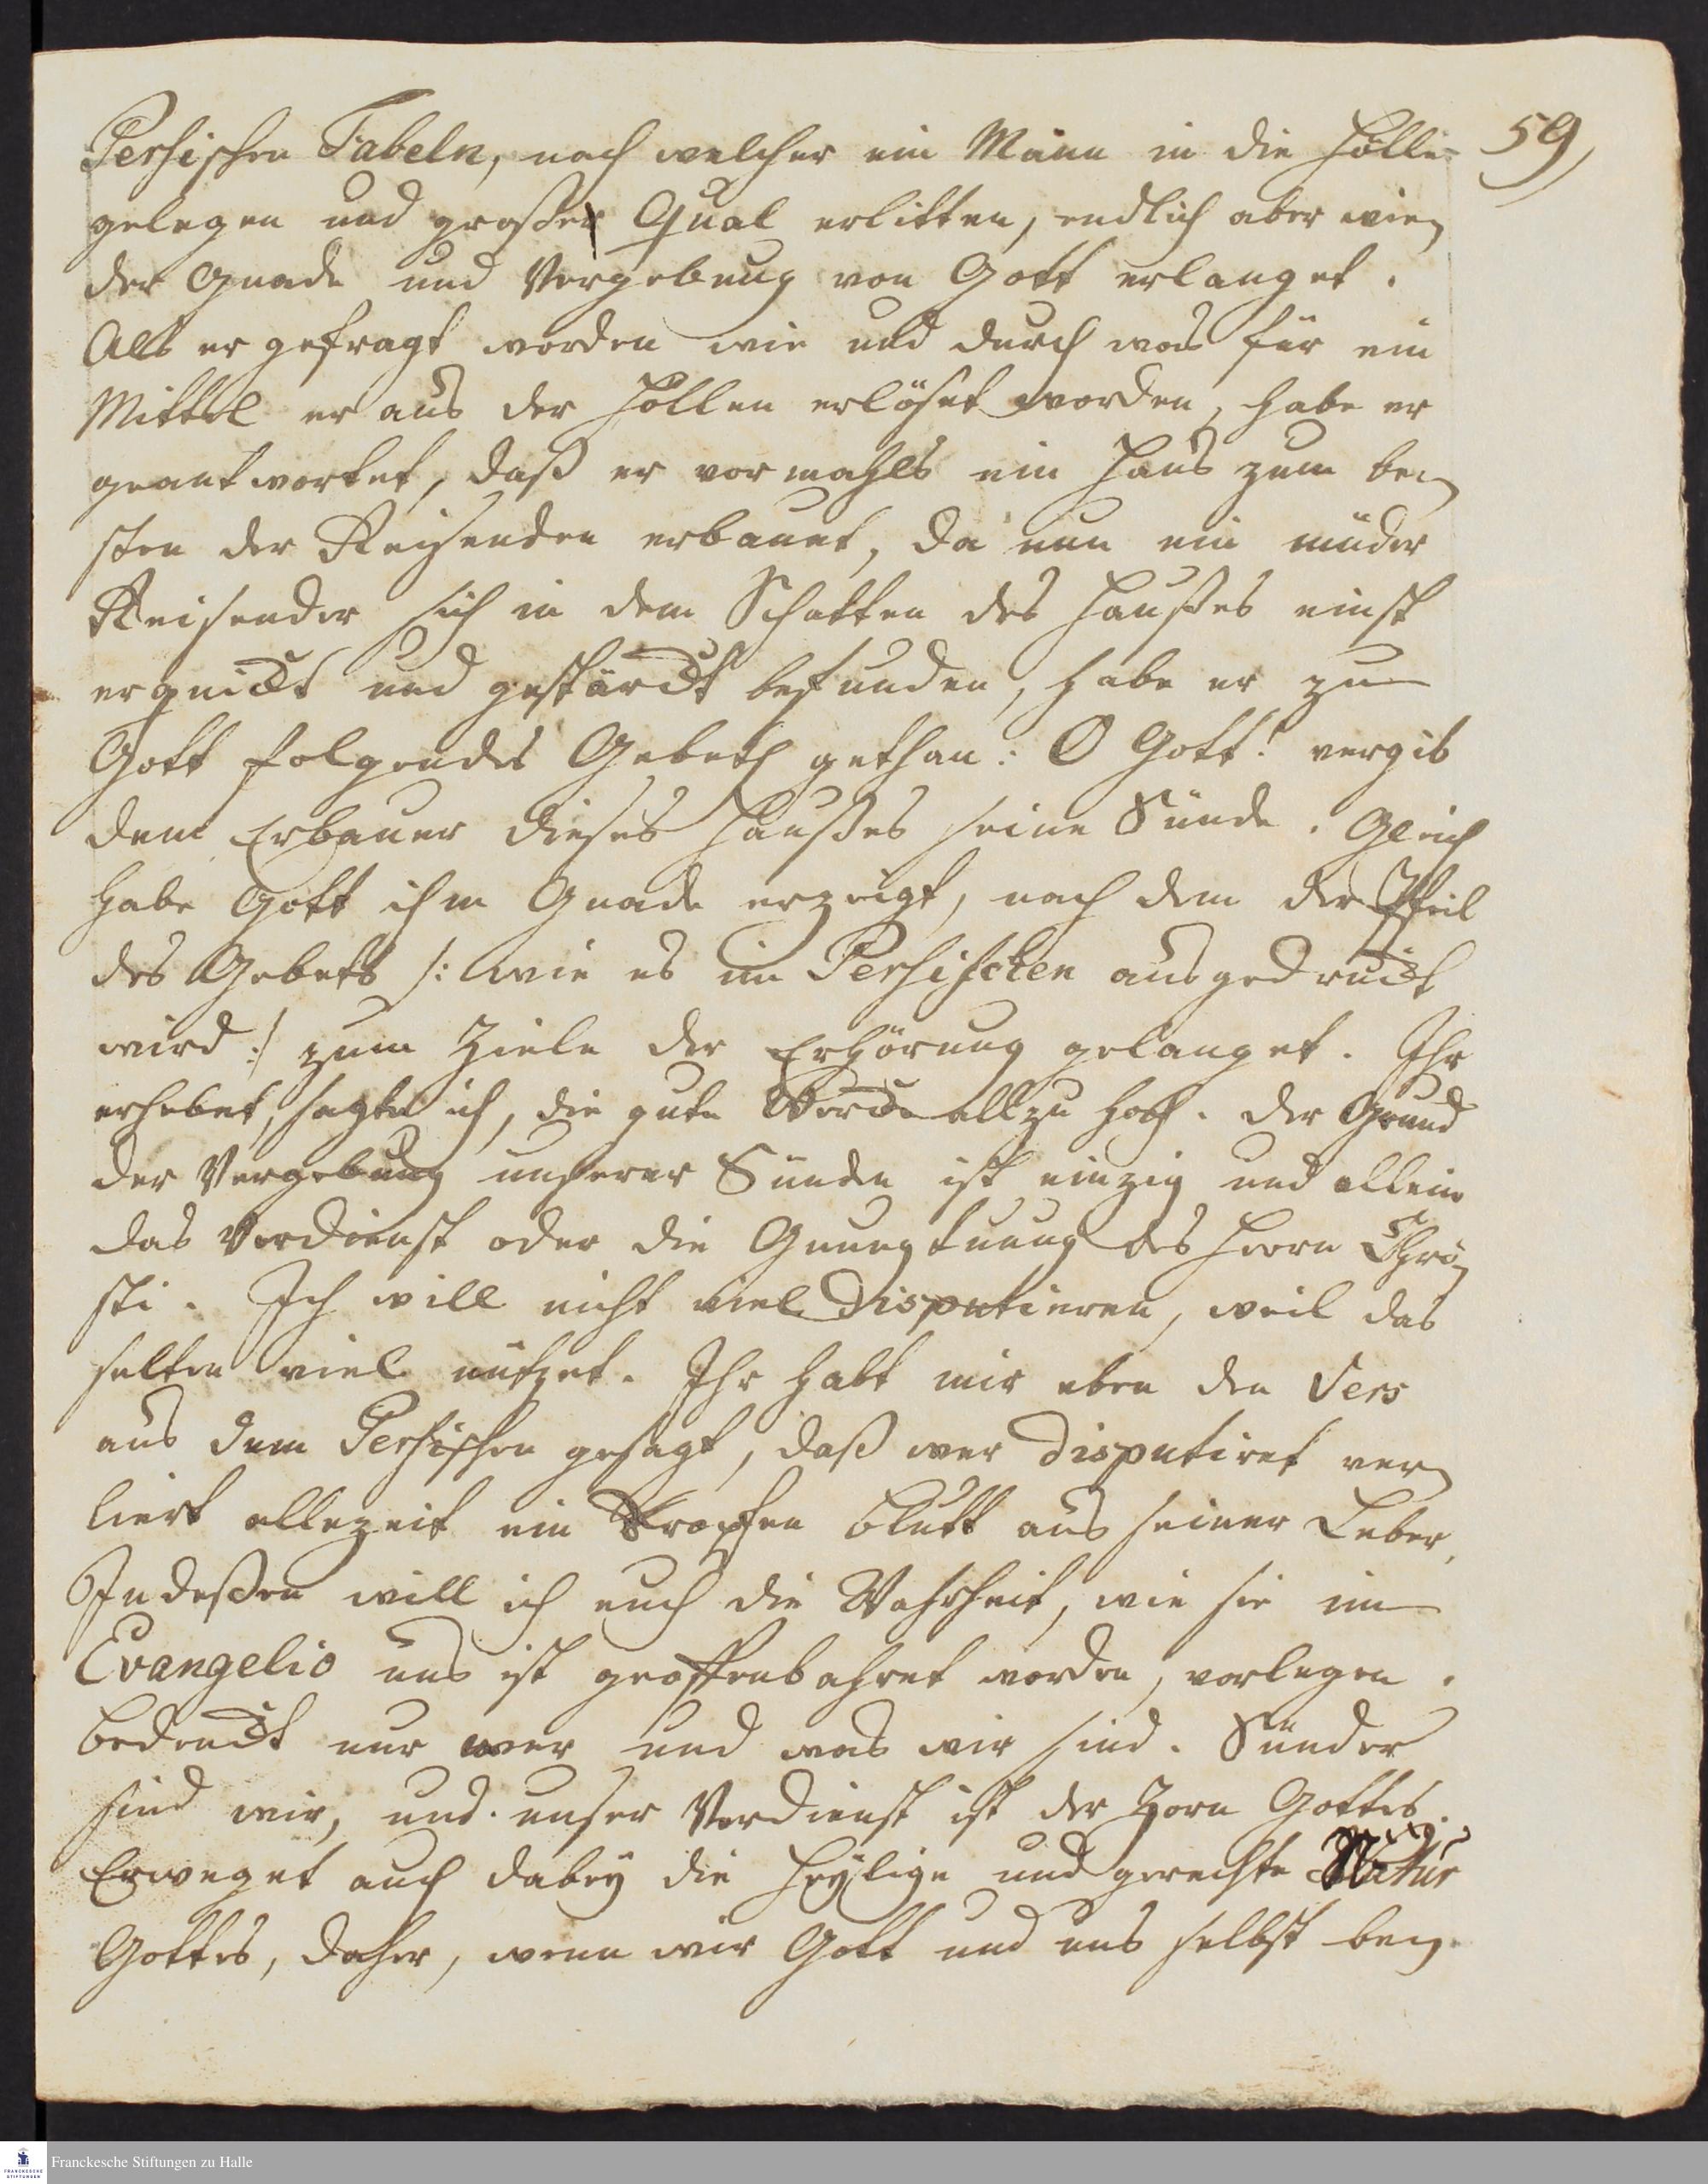 59
Persischen Fabeln, nach welcher ein Mann in die Hölle
gelegen und großer Qual erlitten, endlich aber wie-
der Gnade und Vergebung von Gott erlanget.
Als er gefragt worden wie und durch was für ein
Mittel er aus der Höllen erlöset worden, habe er
geantwortet, daß er vormahls ein Haus zum be-
sten der Reisenden erbauet, da nun ein müder
Reisender sich in dem Schatten des Haußes einst
erquickt und gestärckt befunden, habe er zu
Gott folgendes Gebeth gethan: O Gott! vergib
dem Erbauer dieses Haußes seine Sünde. Gleich
habe Gott ihm Gnade erzeigt, nach dem der Pfeil
des Gebets /: wie es im Persischen ausgedruckt
wird :/ zum Ziele der Erhörung gelanget. Ihr
erhebet, sagte ich, die gute Wercke allzu hoch. Der Grund
der Vergebung unserer Sünden ist einzig und allein
das Verdienst oder die Gnungtuung des Herrn Chri-
sti. Ich will nicht viel disputieren, weil das
selten viel nützet. Ihr habt mir eben den Vers
aus dem Persischen gesagt, daß wer disputiret ver-
liert allezeit ein Tropfen Blutt aus seiner Leber,
Indeßen will ich euch die Wahrheit, wie sie im
Evangelio uns ist geoffenbahret worden, vorlegen.
bedenckt nur wer und was wir sind. Sünder
sind wir, und unser Verdienst ist der Zorn Gottes.
Erweget auch dabey die Heylige und gerechte Natur
Gottes, daher, wenn wir Gott und uns selbst be-
Franckesche Stiftungen zu Halle